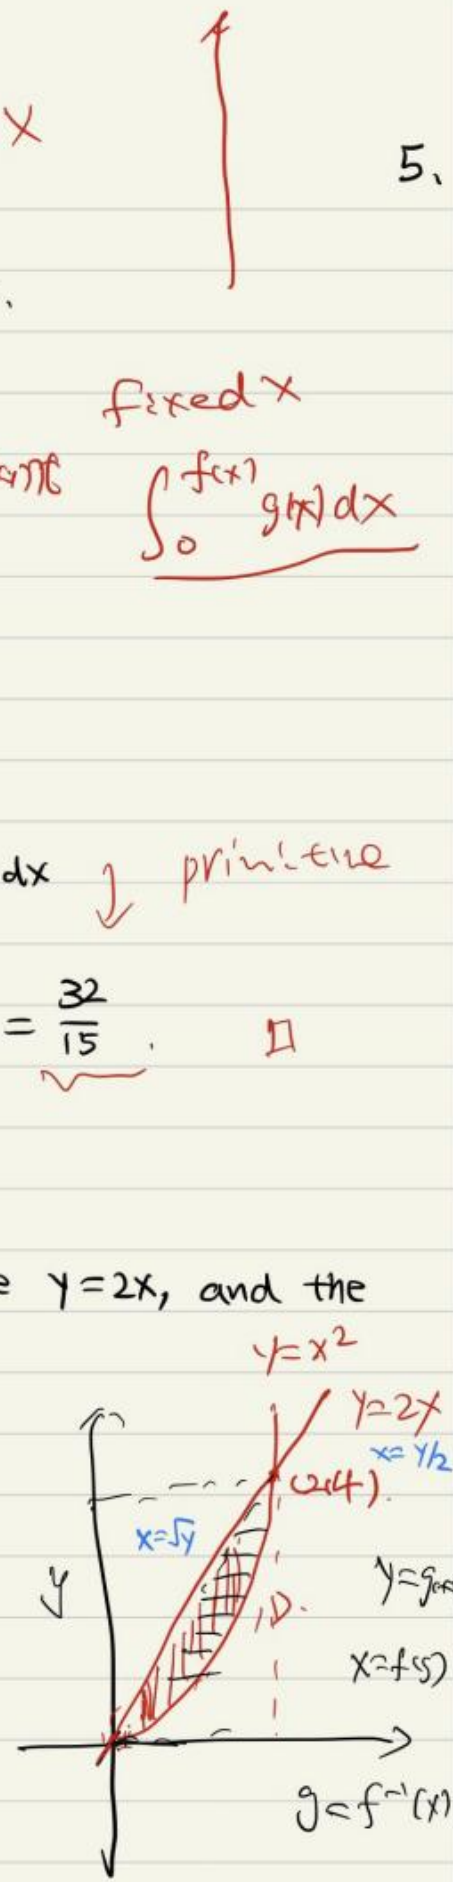 x
5.
fixed x
∫₀^{f(x)} g(x) dx
dx ↓ primitive
= 32/15 . □
y=2x, and the
y=x²
y=2x
x=y/2
(2,4).
x=√y
y
D.
x=f(y)
g=f⁻¹(x)